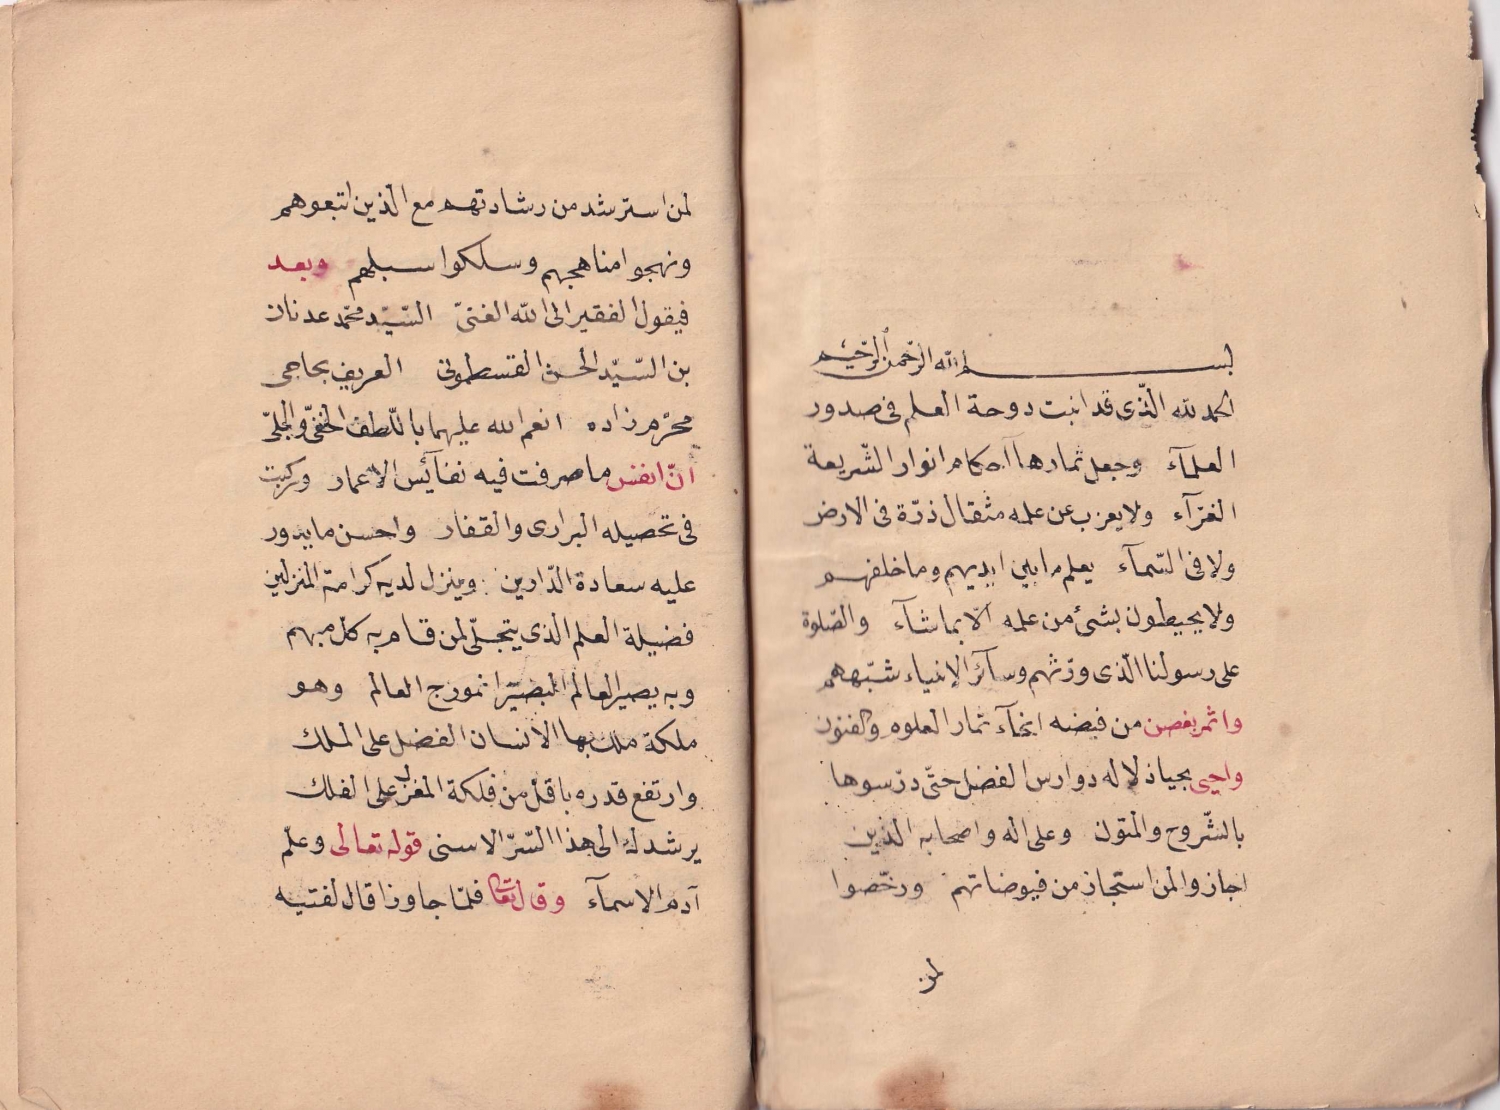 بسم الله الرّحمن الرّحيم
الحمد لله الّذى قد انبت دوحة العلم فى صدور
العلمآء وجعل ثمارها احكام انوار الشّريعة
الغرّآء ولا يعزب عن علمه مثقال ذرّة فى الارض
ولا فى السّمآء يعلم ما بين ايديهم وما خلفهم
ولا يحيطون بشئ من علمه الّا بما شآء والصّلوة
على رسولنا الّذى ورّثهم وسآئر الانبياء شبّههم
واثمر بغصن من فيضه ثمار العلوم والفنون
واحيى دوارس الفضل حتّى درّسوها
بالشّروح والمتون وعلى اله واصحابه الذين
اجازوا لمن استجاز من فيوضاتهم ورخّصوا
لمن
لمن استرشد من رشادتهم مع الّذين اتبعوهم
ونهجوا مناهجهم وسلكوا سبلهم وبعد
فيقول الفقير الى الله الغنىّ السّيّد محمّد عدنان
بن السّيّد الحسن القسطمونى العريف بحاجى
محرّم زاده انعم الله عليهما باللّطف الخفىّ والجلىّ
انّ انفس ما صرفت فيه نفآئس الاعمار وركبت
فى تحصيله البرارى والقفار واحسن ما يدور
عليه سعادة الدّارين وينزل لديه كرامة المنزلين
فضيلة العلم الذى يتجلّى لمن قام به كلّ مبهم
وبه يصير العالم البصير انموزج العالم وهو
ملكة ملك بها الانسان الفضل على الملك
وارتفع قدره باقلّ من فلكة المغزل على الفلك
يرشدك الى هذا السّرّ الاسنى قوله تعالى وعلّم
آدم الاسمآء وقال تعالى فلمّا جاوزا قال لفتيه